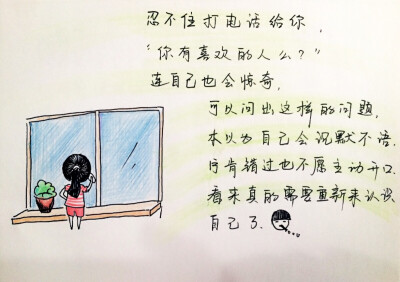 忍不住打电话给你,
“你有喜欢的人么?”
连自己也会惊奇,
可以问出这样的问题,
本以为自己会沉默不语.
宁肯错过也不愿主动开口.
看来真的需要重新来认识
自己了.